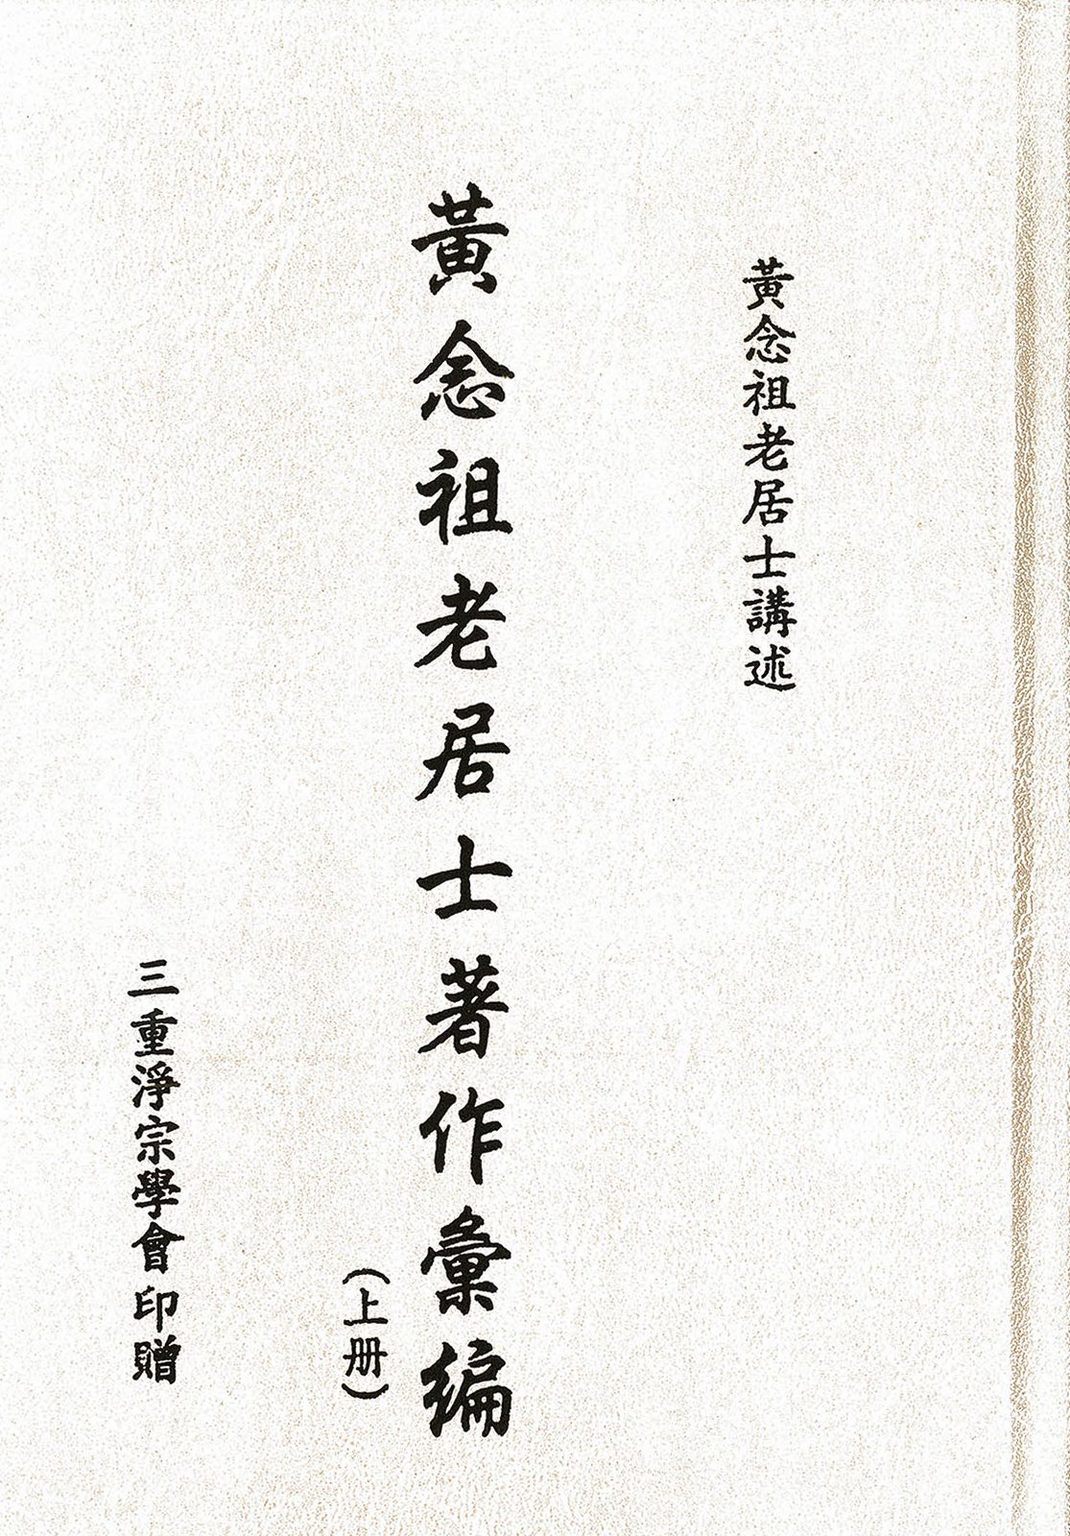 黃念祖老居士講述
黃念祖老居士著作彙編
（上册）
三重淨宗學會印贈